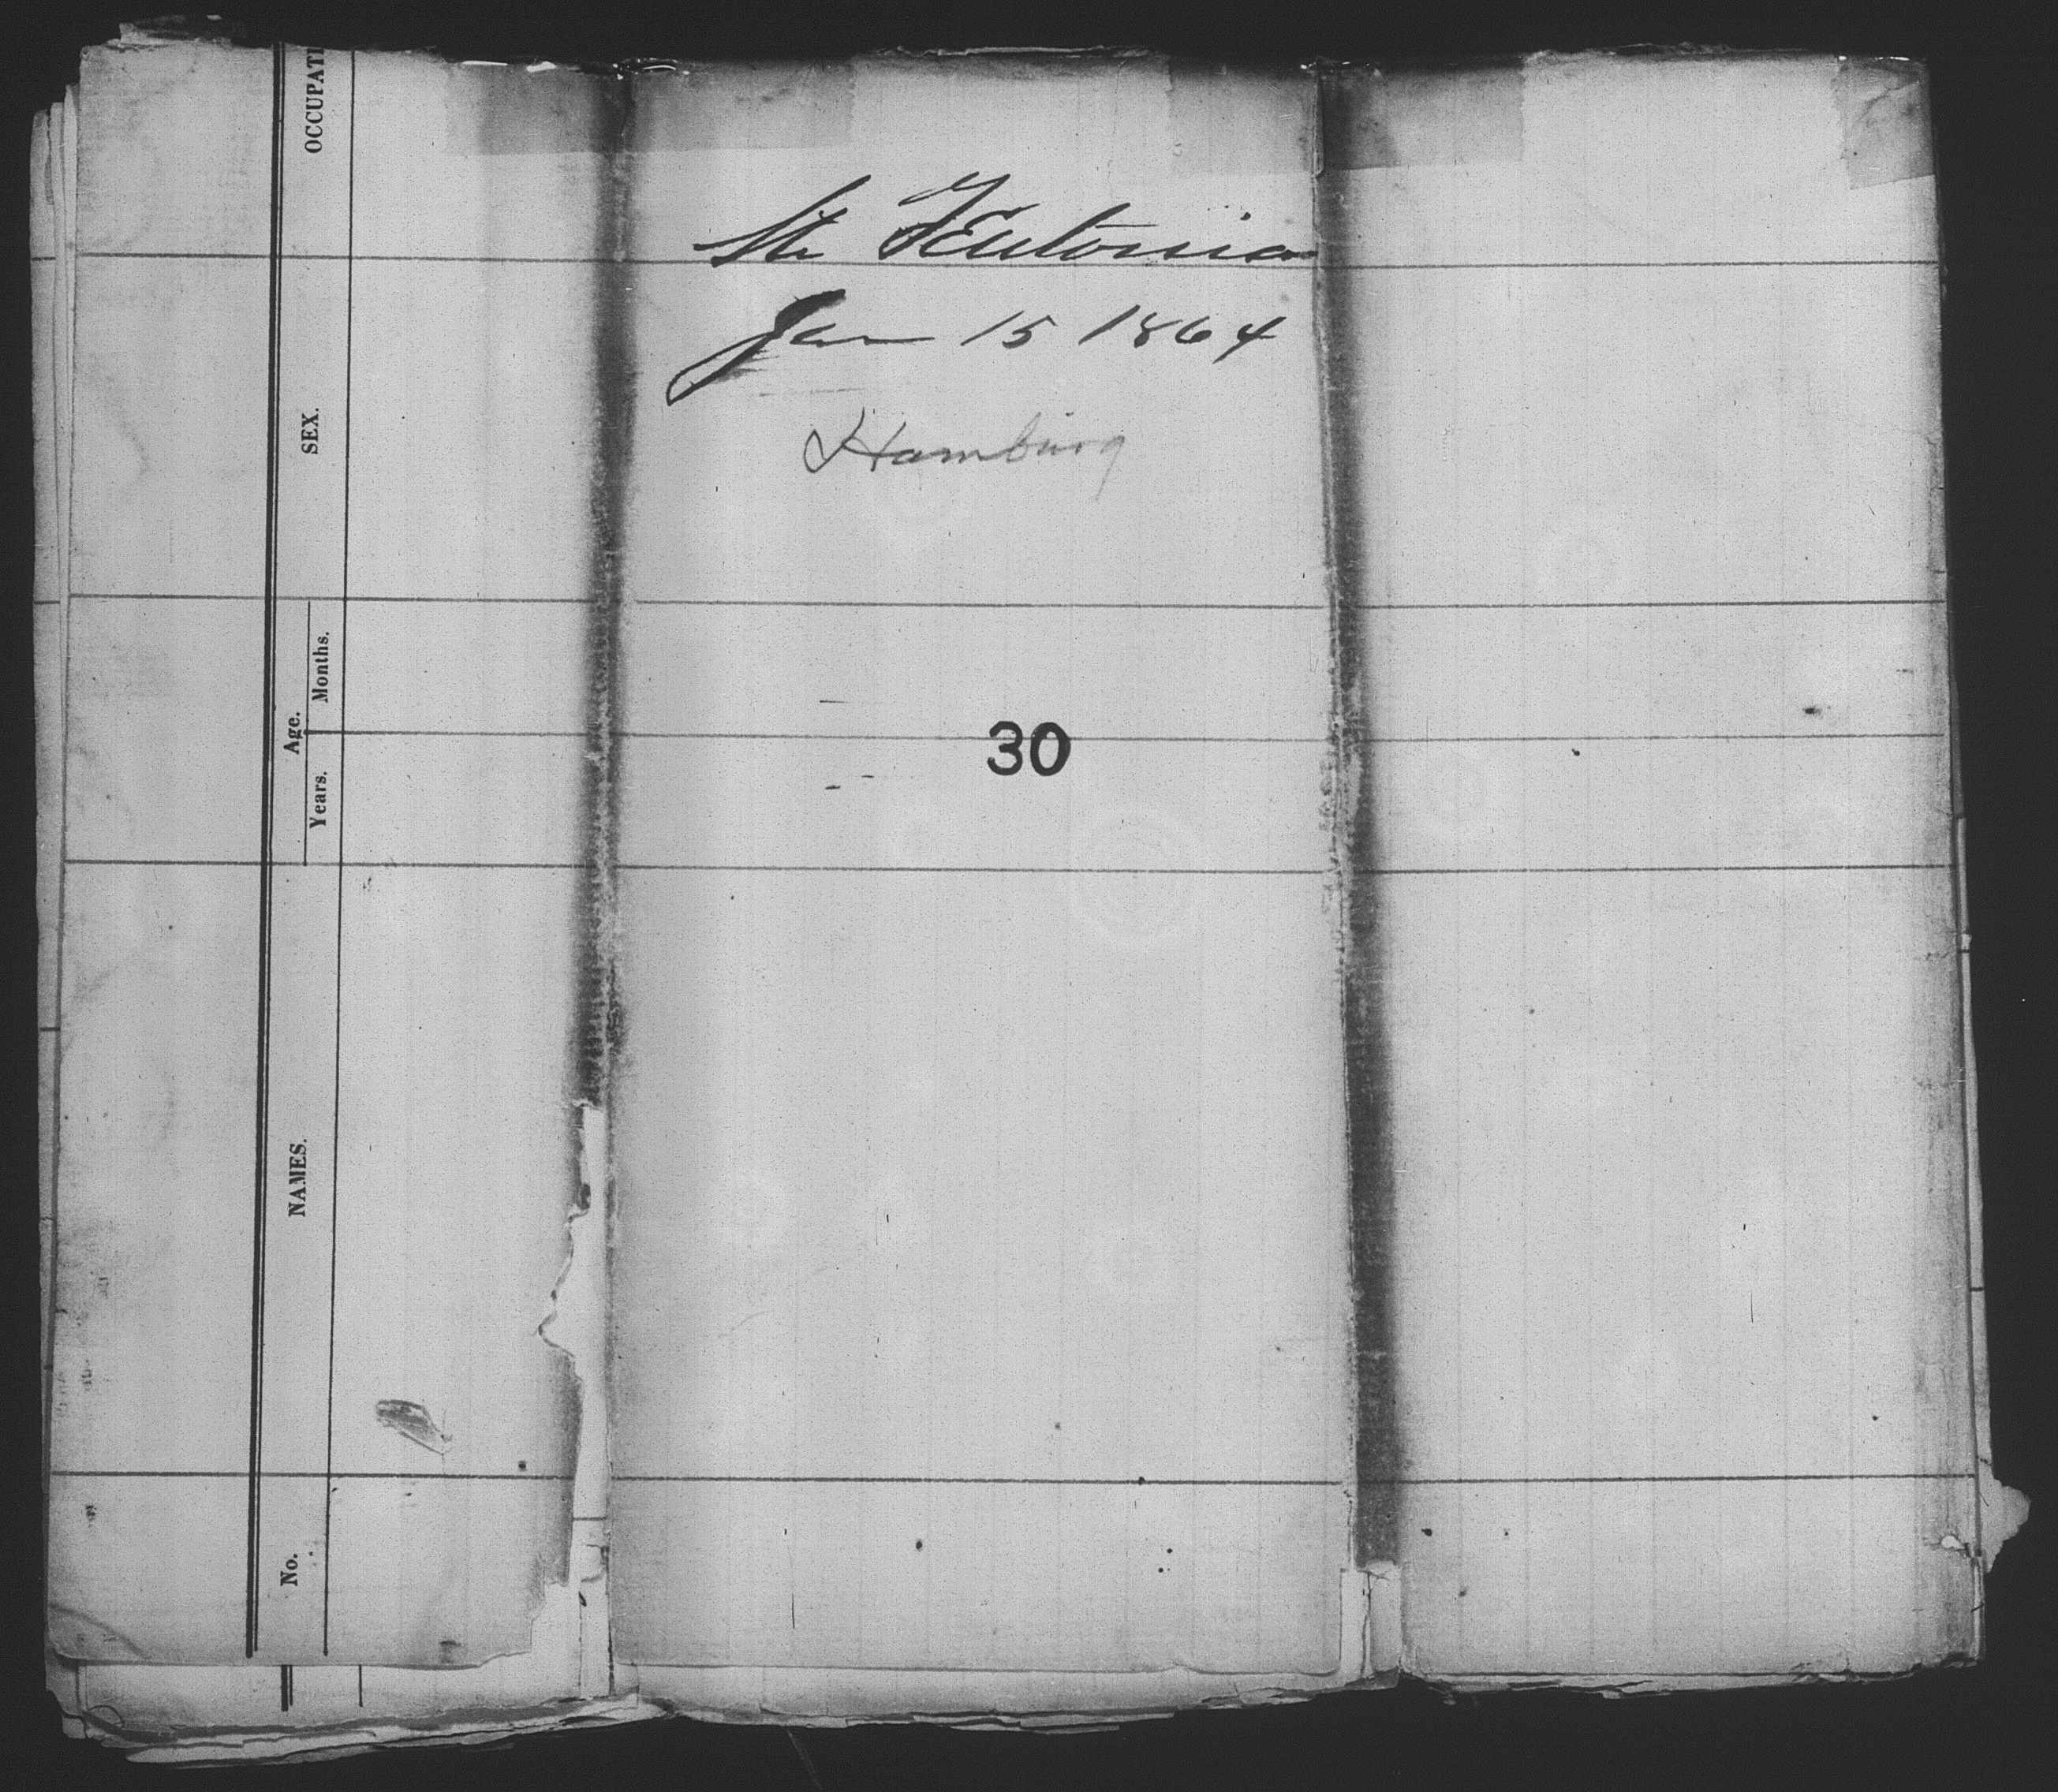 Str Teutonia
Jan 15 1864
Hamburg
30
OCCUPATI
SEX.
Age.
Months.
Years.
NAMES.
No.